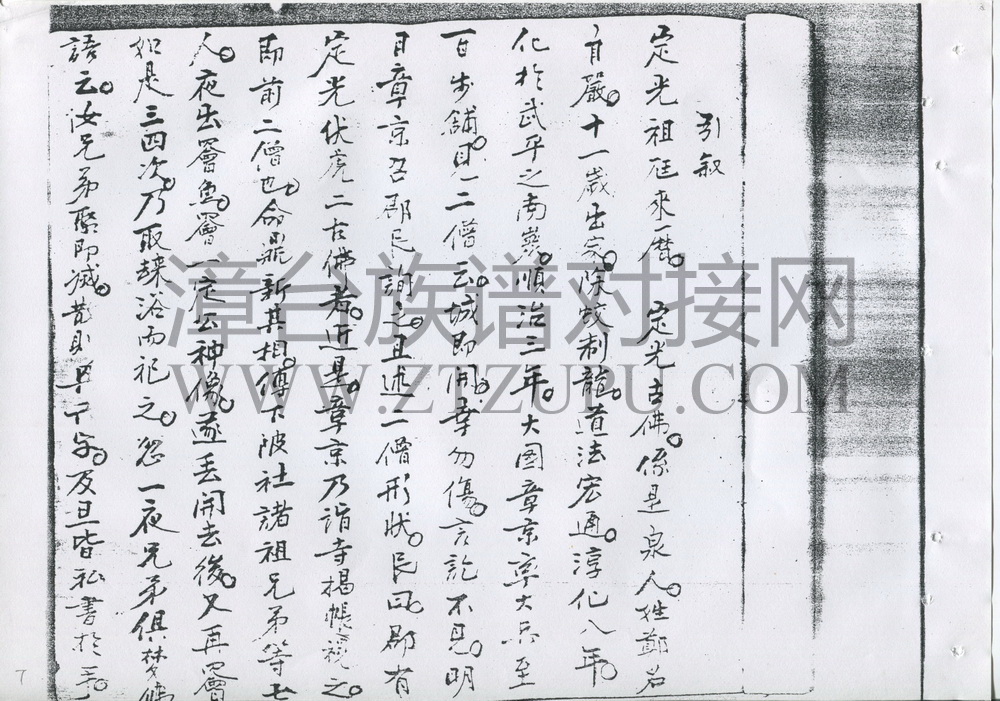 引敘
定光祖庭來曆。定光古佛。係是泉人。姓鄭名
自嚴。十一歲出家。除蛟制龍。道法宏通。淳化八年。
化於武平之南巖。順治三年。大圖章京率大兵至
百步鋪。見二僧云。城即開。幸勿傷。言訖不見。明
日章京召郡民詢之。且述二僧形狀。民曰。郡有
定光伏虎二古佛者。近是。章京乃詣寺揭帳視之。
即前二僧也。命鼎新其相。傅下陂社諸祖兄弟等七
人。夜出罾魚。罾一定公神像。遂丟開去後。又再罾
如是三四次。乃取起浴而祀之。忽一夜兄弟俱夢佛
語云。汝兄弟聚即滅。散則 及旦皆私書於手。
漳台族谱对接网
WWW.ZTZUPU.COM
7